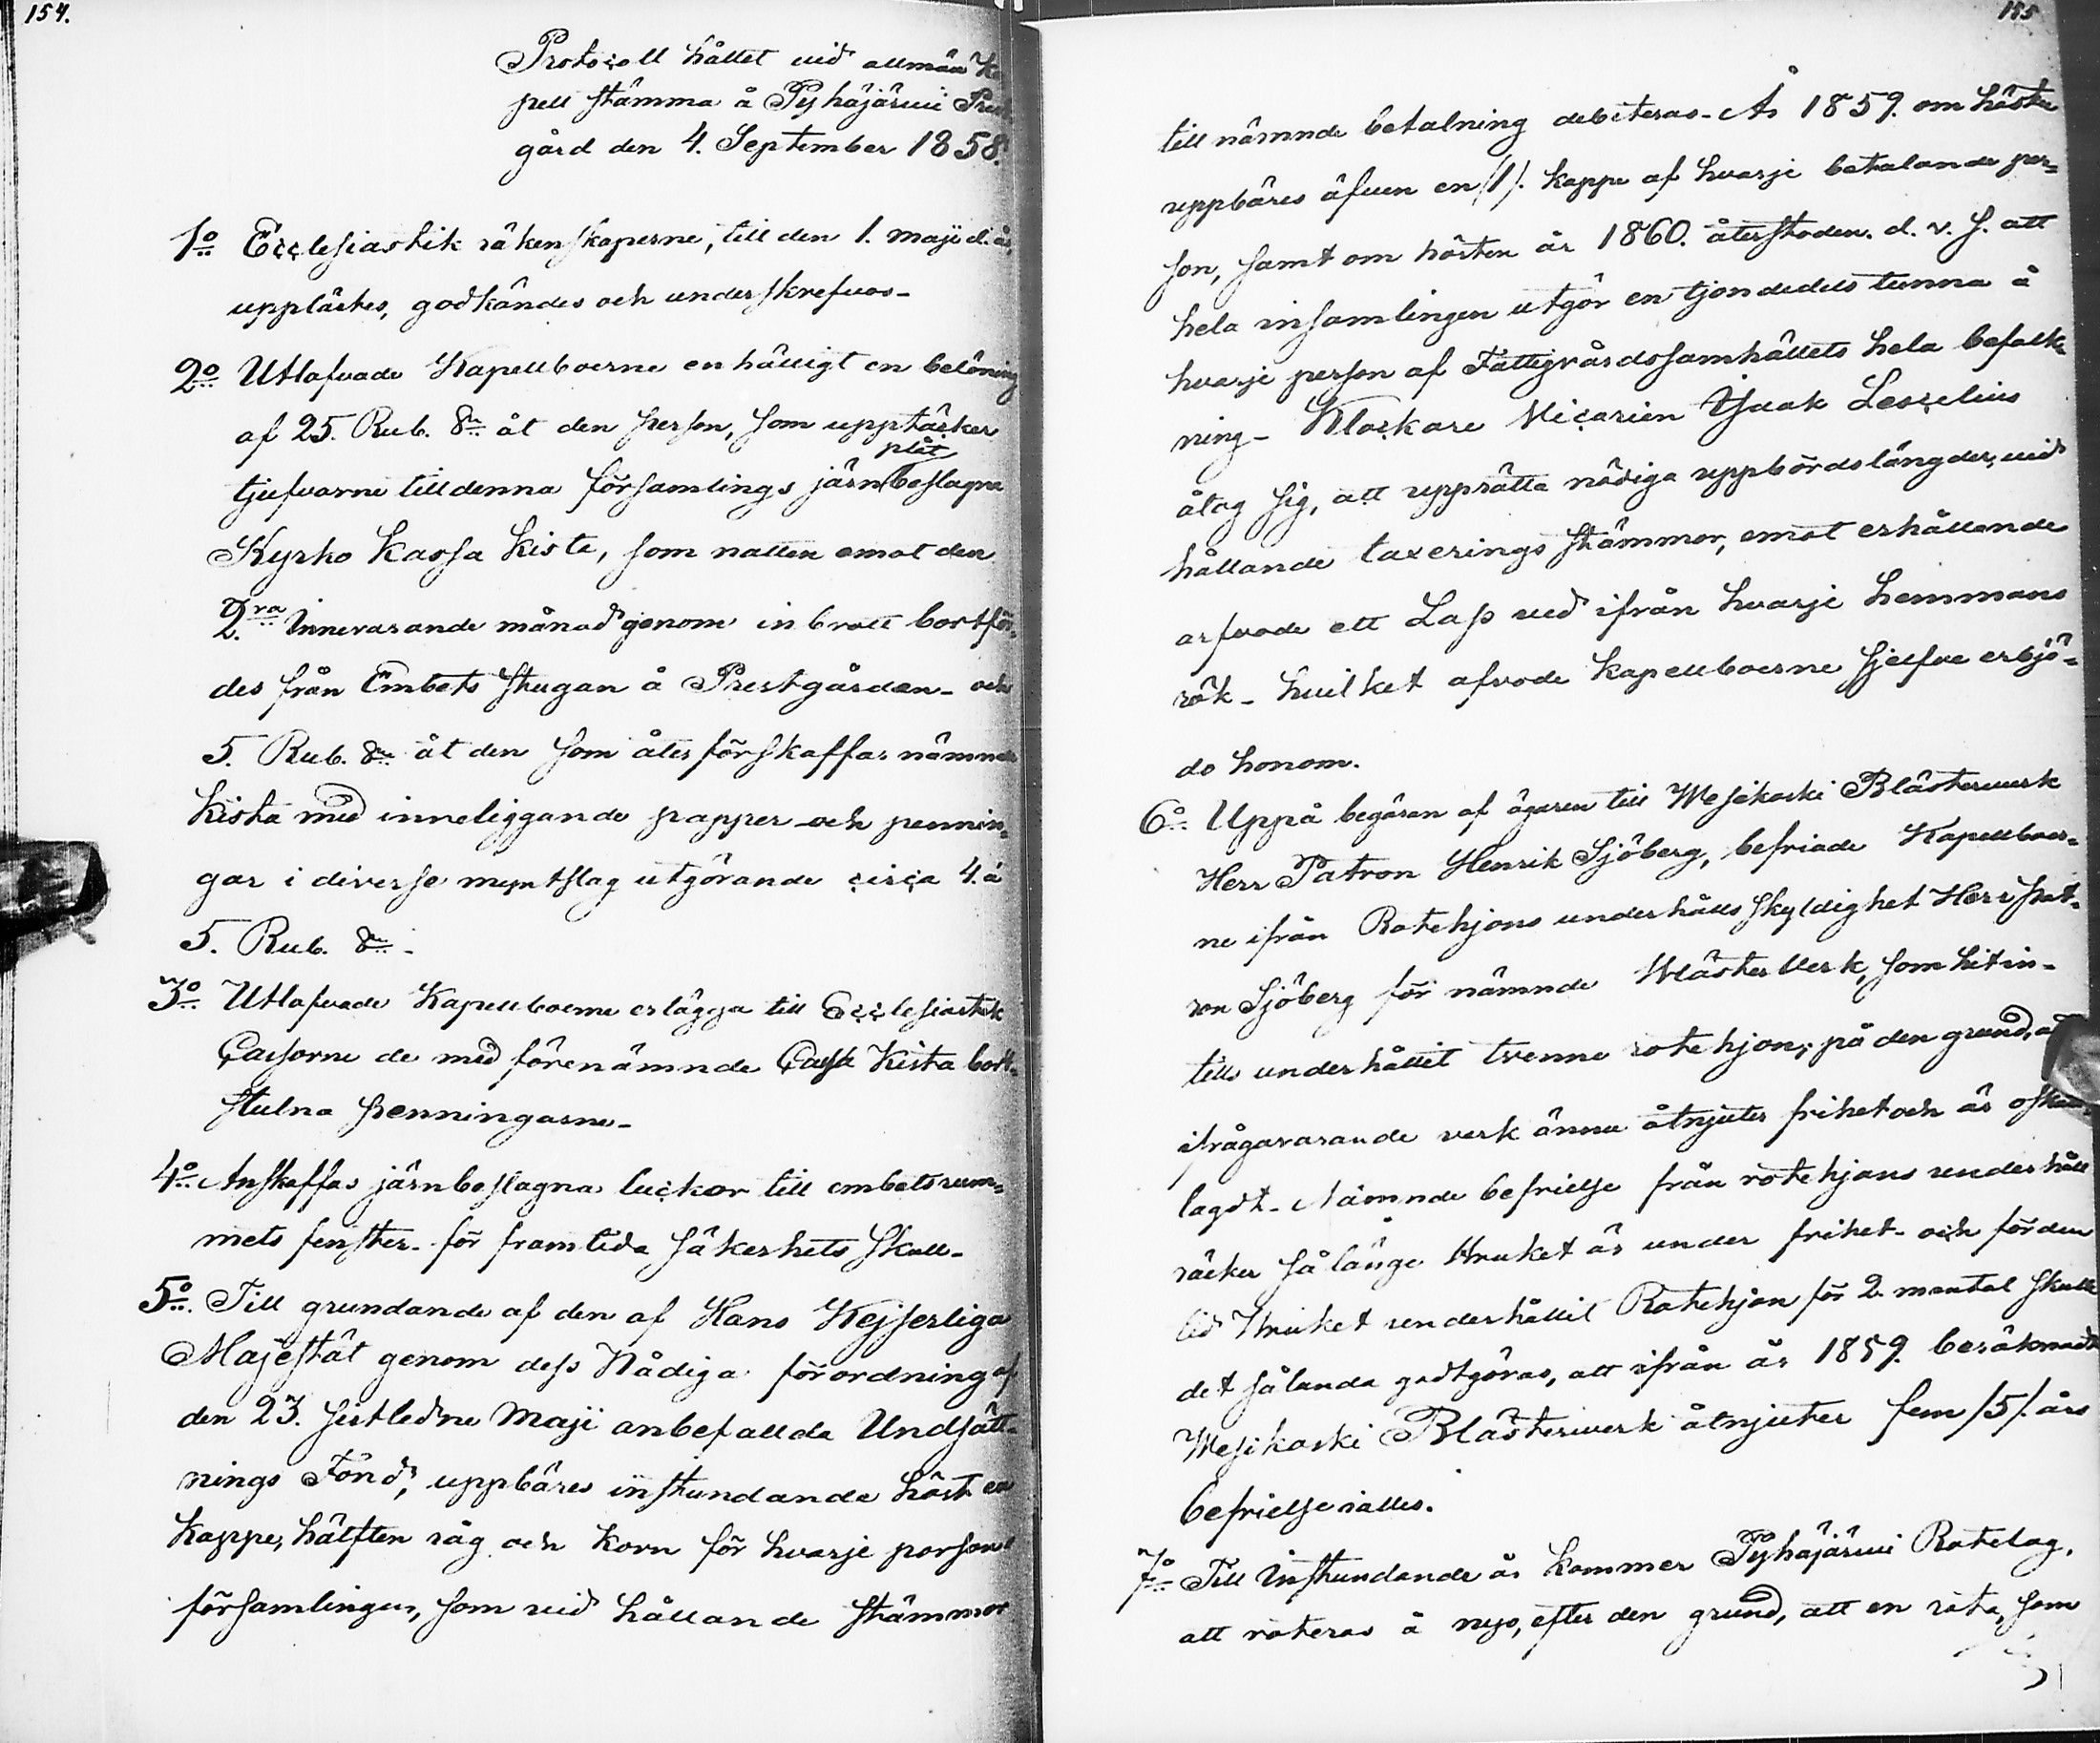 154.
Protocoll hållet vid allmän Ka
pell stämma å Pyhäjärvi Prest
gård den 4. September 1858.
1o Ecclesiastik räkenskaperne, till den 1. maji d. år,
upplästes, godkändes och underskrefvos_
2o Utlofvade Kapellboerne enhälligt en belöning
af 25. Rub. Sr åt den person, som upptäcker
plåt
tjufvarne till denna församlings järn beslagna
Kyrko Kassa Kista, som natten emot den
2.ra innevarande månad genom inbrott bortför-
des från Embets stugan å Prestgården_ och
5. Rub. Sr åt den som återförskaffar nämnde
Kista med inneliggande papper och pennin-
gar i diverse myntslag utgörande circa 4. à
5. Rub. Sr_
3o Utlofvade Kapellboerne erlägga till Ecclesiastik
Cassorne de med förenämnde Cassa Kista bort-
stulna penningarne_
4o Anskaffas järnbeslagna luckor till embetsrum-
mets fenster för framtida säkerhets skull_
5o. Till grundande af den af Hans Kejserliga
Majestät genom dess Nådiga förordning af
den 23. sistledne Maji anbefallda Undsätt-
nings Fond, uppbäres instundande höst en
kappe, hälften råg och korn för hvarje person i
församlingen, som vid hållande stämmor
155
till nämnde betalning debiteras_ År 1859. om hösten
uppbäres äfven en /1/. kappe af hvarje betalande per-
son, samt om hösten år 1860. återstoden. d. v. s. att
hela insamlingen utgör en tjondedels tunna å
hvarje person af Fattigvårdssamhällets hela befolk-
ning_ Klockare Vicarien Isaak Lescelius
åtog sig, att upprätta nödiga uppbördslängder, vid
hållande taxerings stämmor, emot erhållande
arfvode ett Lass ved ifrån hvarje hemmans
rök_ hvilket afvode kapellboerne sjelfve erbjö-
do honom.
6o. Uppå begäran af ägaren till Wesikoski Blästerverk
Herr Patron Henrik Sjöberg, befriade Kapellboer-
ne ifrån Rotehjons underhålls skyldighet Herr Pat-
ron Sjöberg för nämnde Bläster Verk, som hitin-
tills underhållit tvenne rotehjon, på den grund, att
ifrågavarande verk ännu åtnjuter frihet och är oskatt-
lagdt_ Nämnde befrielse från rotehjons underhåll
räcker så länge Bruket är under frihet_ och för den
tid Bruket underhållit Rotehjon för 2. mantal skulle
det sålunda godtgöras, att ifrån år 1859. beräknadt
Wesikoski Blästerverk åtnjuter fem /5/. års
befrielse rättes.
7o Till instundande år kommer Pyhäjärvi Rotelag,
att roteras å nyo, efter den grund, att en rota, som